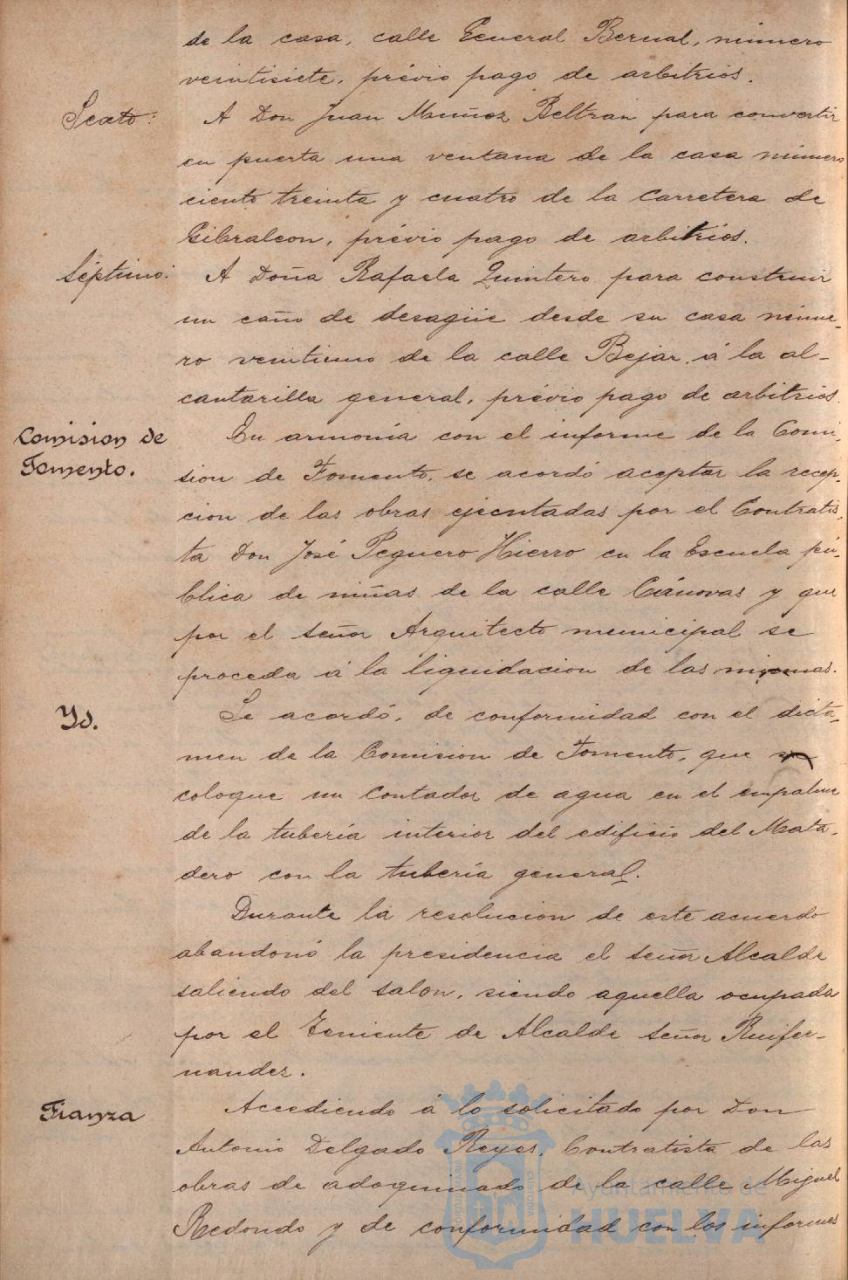 de la casa, calle General Bernal, número
veintisiete, prévio pago de arbitrios.
Sexto: A Don Juan Muñoz Beltran para convertir
en puerta una ventana de la casa número
ciento treinta y cuatro de la Carretera de
Gibraleon, prévio pago de arbitrios.
Séptimo: A Doña Rafaela Quintero para construir
un caño de desagüe desde su casa núme-
ro veintiuno de la calle Bejar á la al-
cantarilla general, prévio pago de arbitrios.
Comision de En armonía con el informe de la Comi-
Fomento. sion de Fomento, se acordó aceptar la recep-
cion de las obras ejecutadas por el Contratis-
ta Don José Peguero Hierro en la Escuela pú-
blica de niñas de la calle Cánovas y que
por el señor Arquitecto municipal se
proceda á la liquidacion de las mismas.
Yd. Se acordó, de conformidad con el dicta-
men de la Comision de Fomento, que se
coloque un contador de agua en el empalme
de la tubería interior del edificio del Mata-
dero con la tubería general.
Durante la resolucion de este acuerdo
abandonó la presidencia el señor Alcalde
saliendo del salon, siendo aquella ocupada
por el Teniente de Alcalde señor Ruifer-
nandez.
Fianza Accediendo á lo solicitado por Don
Antonio Delgado Reyes, Contratista de las
obras de adoquinado de la calle Miguel
Redondo y de conformidad con los informes
Ayuntamiento de
HUELVA